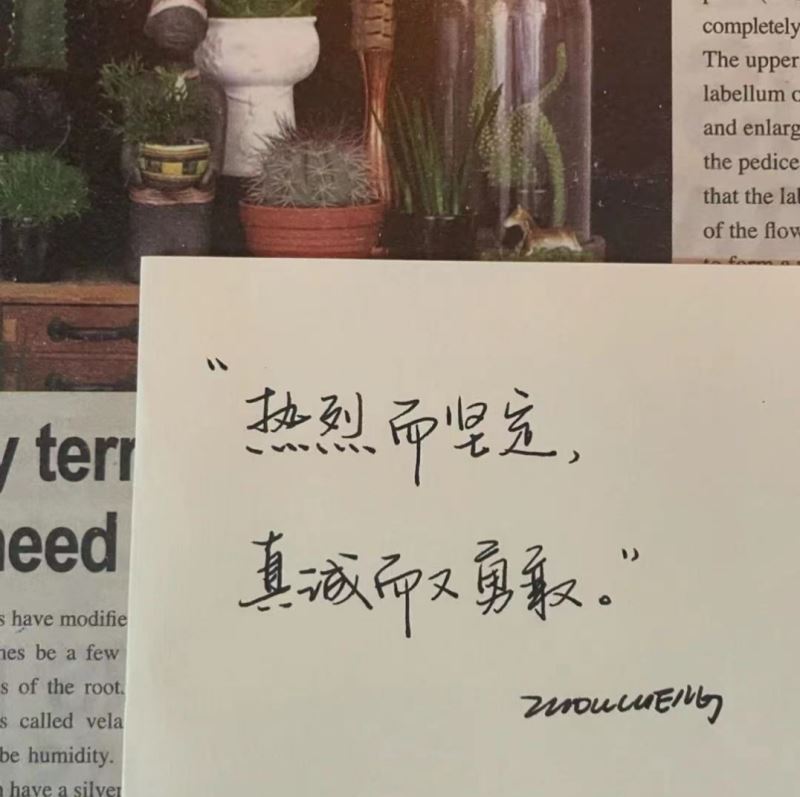 completely
The upper
labellum
and enlarg
the pedice
that the
of the flow
y terr
need
s have modifie
nes be a few
s of the root.
s called vela
be humidity.
have a silver
“热烈而坚定，
真诚而又勇敢。”